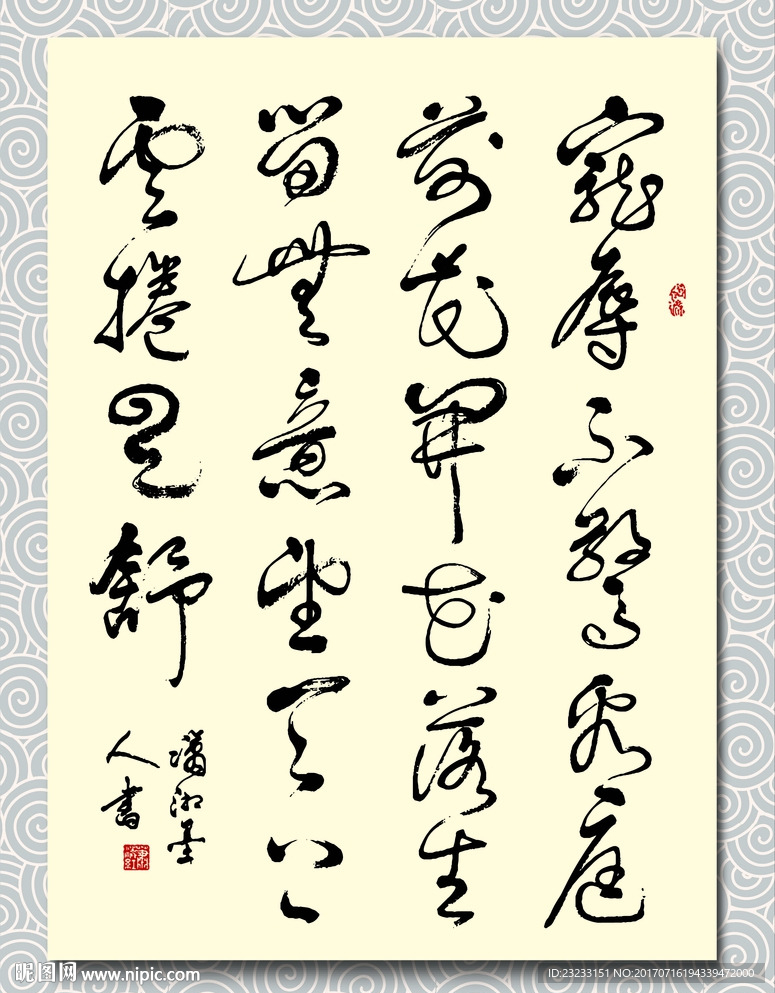 寵辱不驚看庭
前花開花落去
留無意望天上
雲捲雲舒
瀟湘墨
人書
昵图网 www.nipic.com
ID:23233151 NO:20170716194339472000